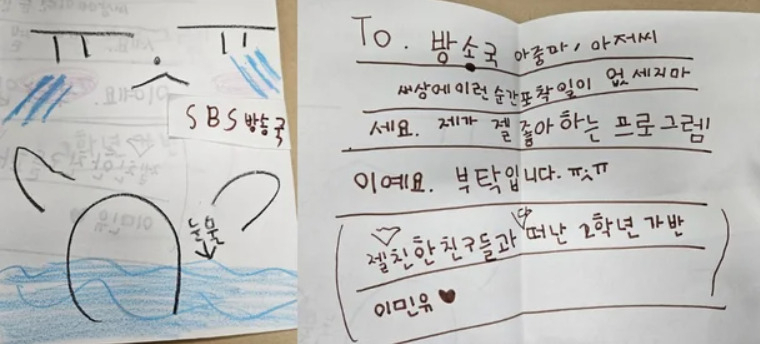 SBS방송국
눈물
To. 방소국 아줌마, 아저씨
세상에이런 순간포착일이 없세지마
세요. 제가 젤 좋아하는 프로그렘
이예요. 부탁입니다. ㅠㅅㅠ
(젤친한친구들과 떠난 2학년 가반
이민유♥)